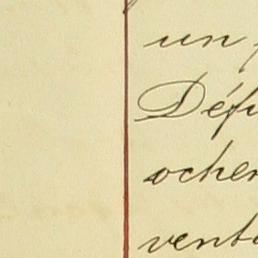 un
Défu
ocher
vent